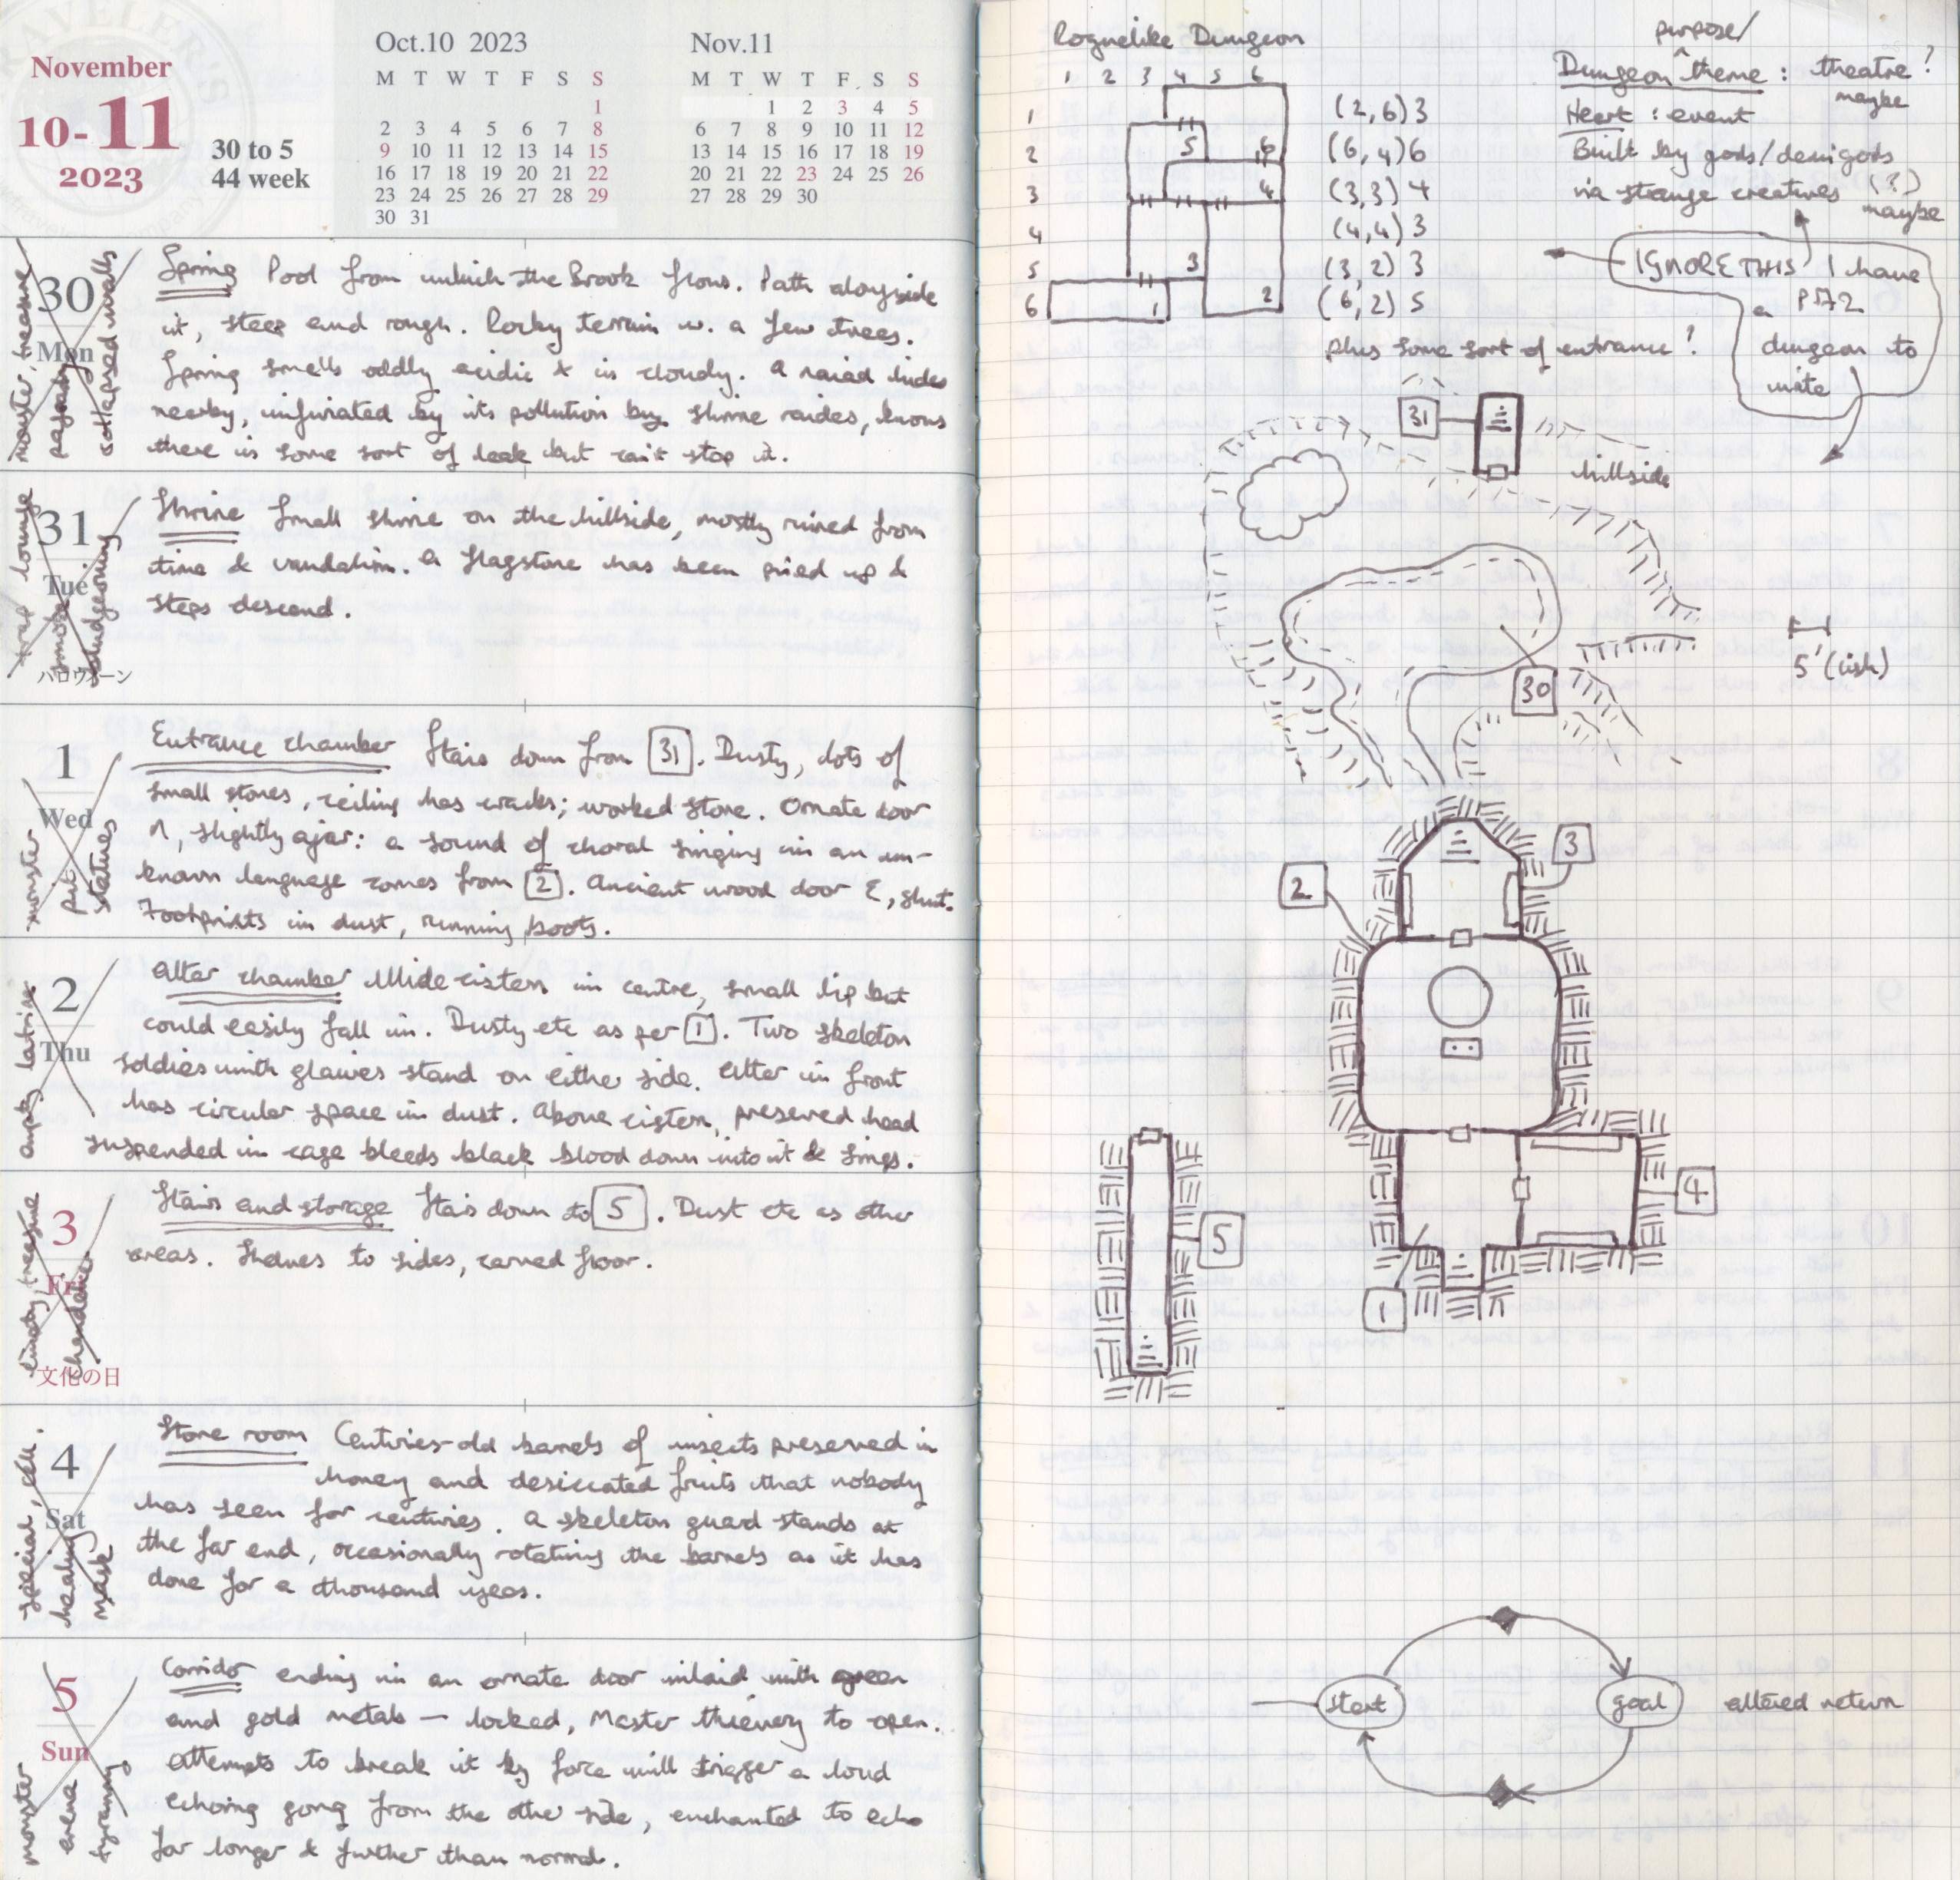 November
10-11
2023
30 to 5
44 week
Oct.10 2023
M T W T F S S
1
2 3 4 5 6 7 8
9 10 11 12 13 14 15
16 17 18 19 20 21 22
23 24 25 26 27 28 29
30 31
Nov.11
M T W T F S S
1 2 3 4 5
6 7 8 9 10 11 12
13 14 15 16 17 18 19
20 21 22 23 24 25 26
27 28 29 30
30
Mon
monster, treasure
collapsed walls
Spring Pool from which the Brook flows. Path alongside
it, steep and rough. Rocky terrain w. a few trees.
Spring smells oddly acidic & is cloudy. A naiad hides
nearby, infuriated by its pollution by shrine raiders, knows
there is some sort of leak but can't stop it.
31
Tue
ハロウィーン
trap lounge
smoke
bludgeoning
Shrine Small shrine on the hillside, mostly ruined from
time & vandalism. A flagstone has been pried up &
steps descend.
1
Wed
monster
pit
statues
Entrance chamber Stairs down from 31. Dusty, dots of
small stones, ceiling has cracks; worked stone. Ornate door
N, slightly ajar: a sound of choral singing in an un-
known language comes from 2. Ancient wood door E, shut.
Footprints in dust, running boots.
2
Thu
empty latrine
Alter chamber Wide cistern in centre, small lip but
could easily fall in. Dusty etc as per 1. Two skeleton
soldiers with glaives stand on either side. Alter in front
has circular space in dust. Above cistern, preserved head
suspended in cage bleeds black blood down into it & sings.
3
Fri
文化の日
empty, treasure
chandelier
Stairs and storage Stairs down to 5. Dust etc as other
areas. Shelves to sides, carved floor.
4
Sat
special, cell.
healing
mask
Store room Centuries-old barrels of insects preserved in
honey and desiccated fruits that nobody
has seen for centuries. A skeleton guard stands at
the far end, occasionally rotating the barrels as it has
done for a thousand years.
5
Sun
monster
arena
tyranny
Corridor ending in an ornate door inlaid with green
and gold metals — locked, Master thievery to open.
Attempts to break it by force will trigger a loud
echoing gong from the other side, enchanted to echo
far longer & further than normal.
Roguelike Dungeon
1 2 3 4 5 6
1
2
3
4
5
6
5
6
4
3
1
2
(2,6) 3
(6,4) 6
(3,3) 4
(4,4) 3
(3,2) 3
(6,2) 5
plus some sort of entrance?
purpose/
Dungeon ^ theme: theatre?
maybe
Heart: event
Built by gods/demigods
via strange creatures (?)
maybe
IGNORE THIS I have
a PF2
dungeon to
write
31
hillside
5' (ish)
30
2
3
4
5
1
start
goal
altered return